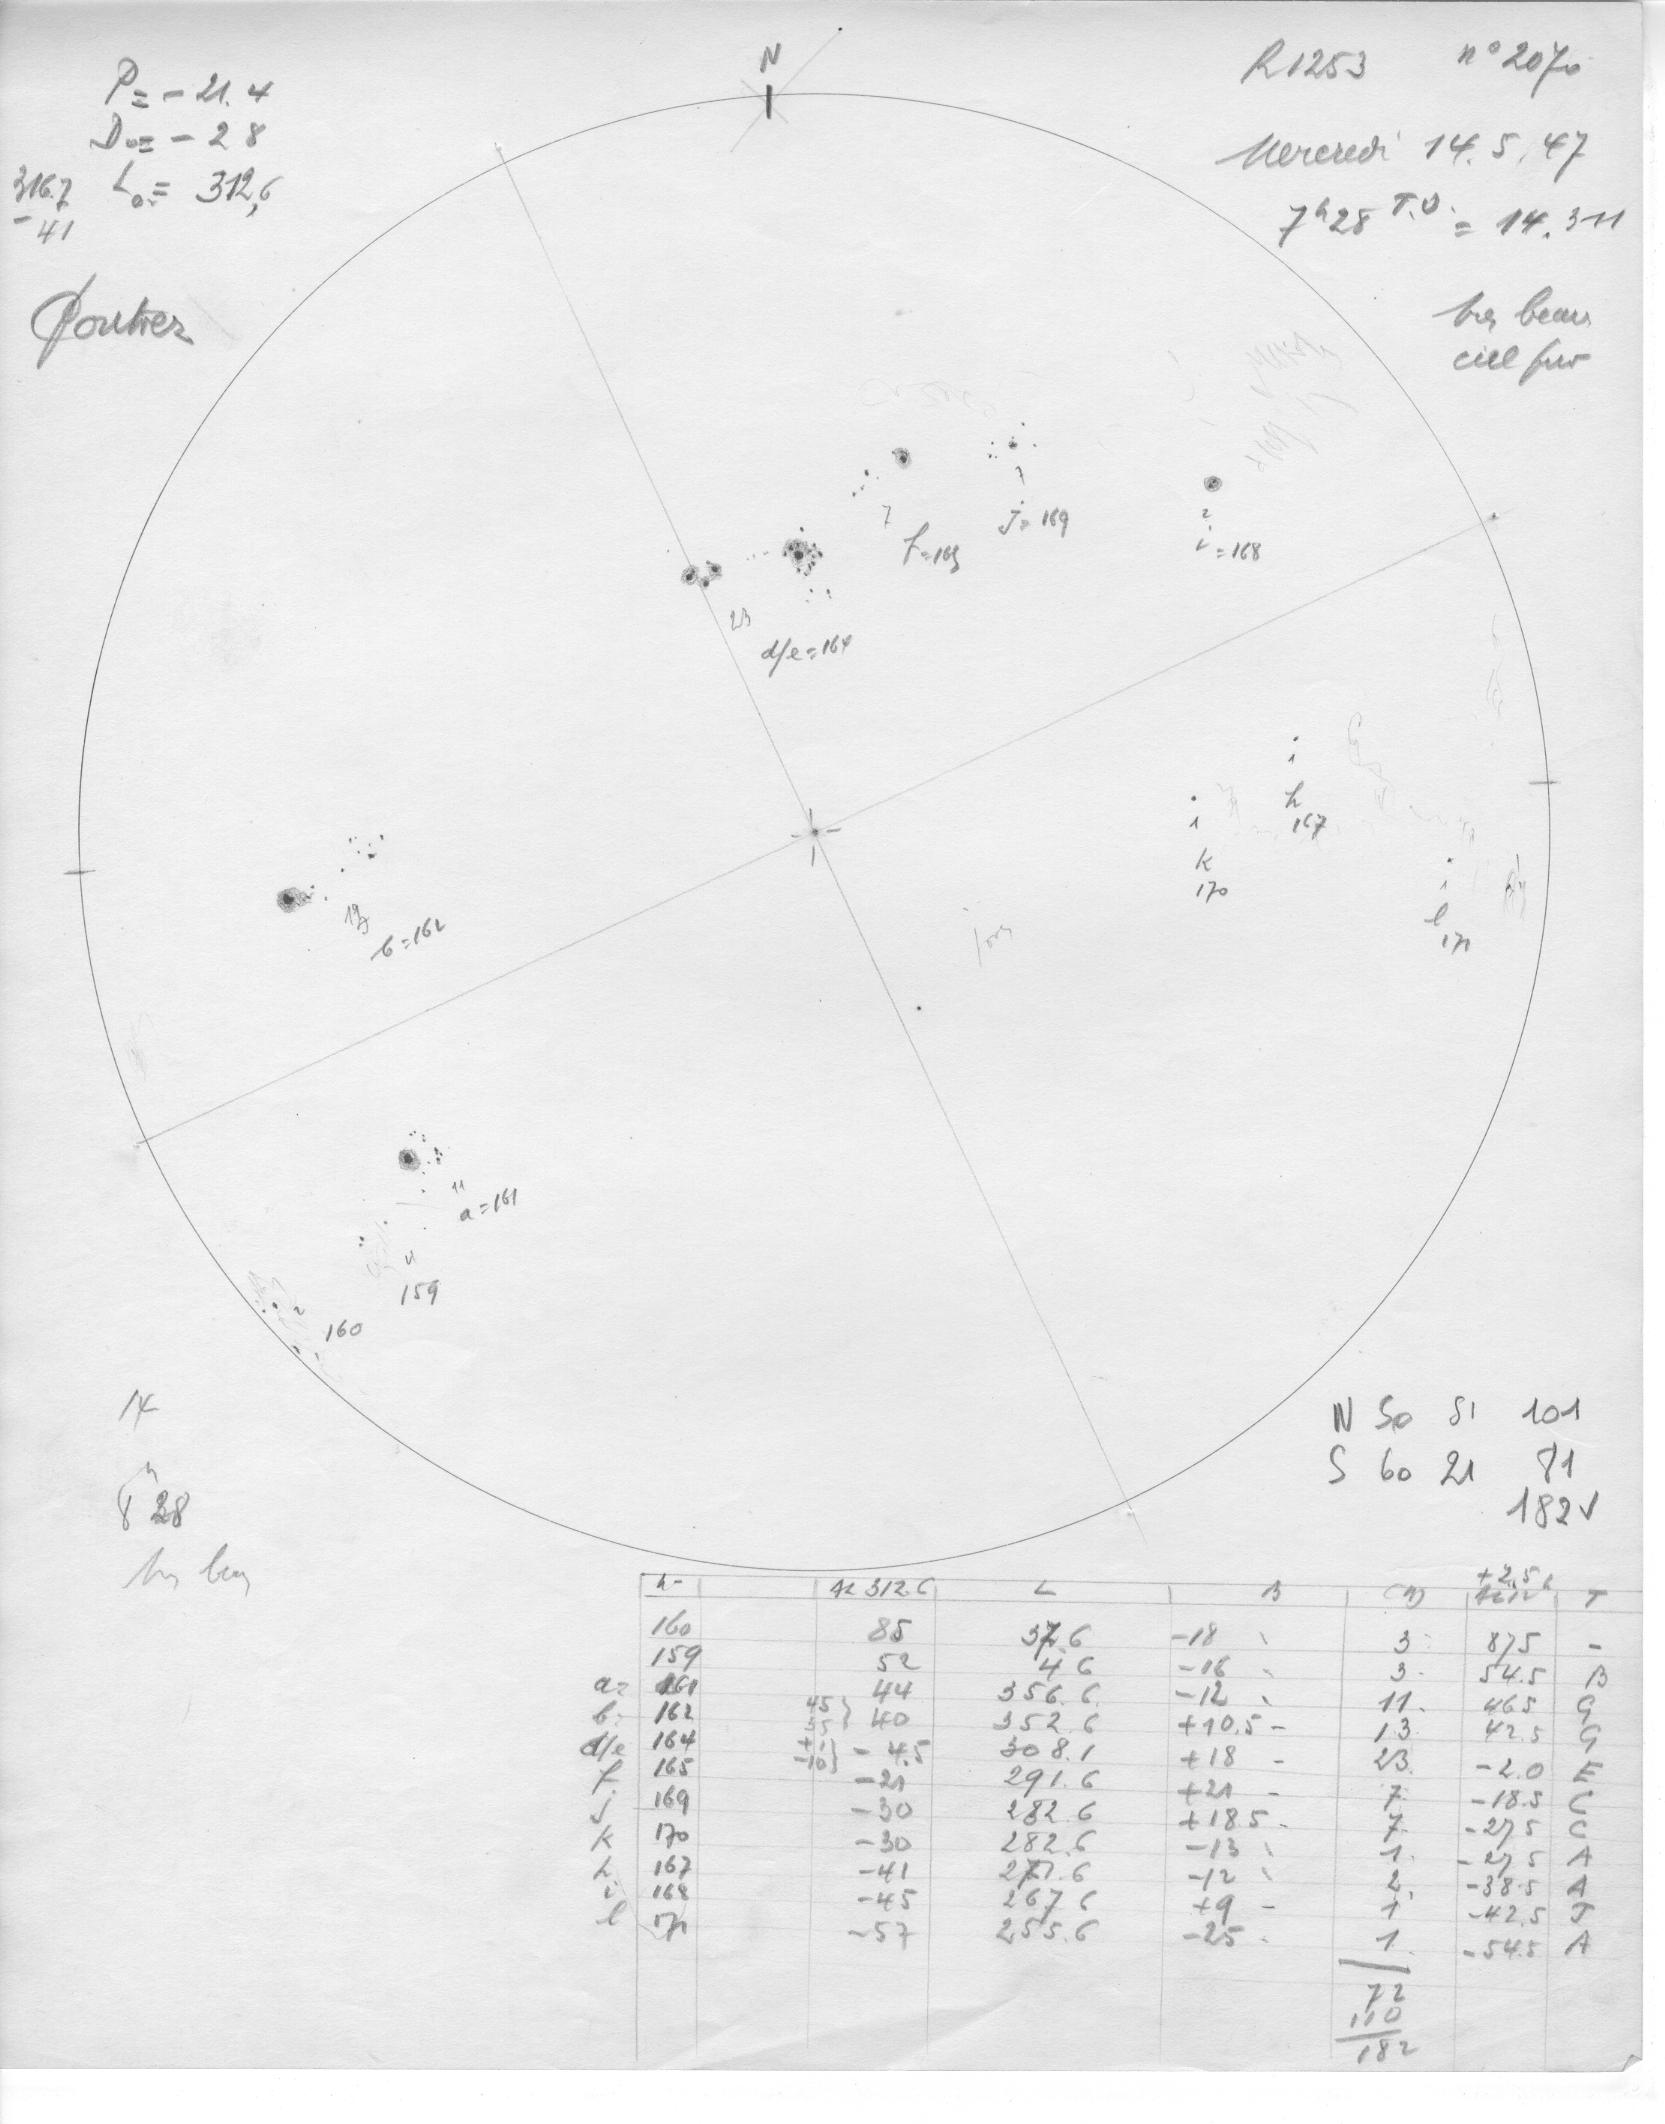 N
P = - 21.4
D₀ = - 2 8
L₀ = 312,6
316.7
- 41
R1253 n° 2070
Mercredi 14.5.47
7h28 T.U. = 14.311
très beau
ciel pur
7
f=165
7
J=169
2
i=168
23
d/e=164
1
h
167
1
k
170
1
l
171
b=162
11
a=161
159
2
160
14
8h 28
N 50 51 101
S 60 21 81
182 √
312.6 L B +2,5 T
160 85 37.6 -18 3 87.5 -
159 52 4.6 -16 3 54.5 B
a= 161 44 356.6 -12 11 46.5 G
b= 162 45 35 } 40 352.6 +10.5 13 42.5 G
d/e 164 -10 } -4.5 308.1 +18 23 -2.0 E
f 165 -21 291.6 +21 7 -18.5 C
j 169 -30 282.6 +18.5 7 -27.5 C
k 170 -30 282.6 -13 1 -27.5 A
h 167 -41 271.6 -12 2 -38.5 A
i 168 -45 267.6 +9 1 -42.5 J
l 171 -57 255.6 -25 1 -54.5 A
72
110
182